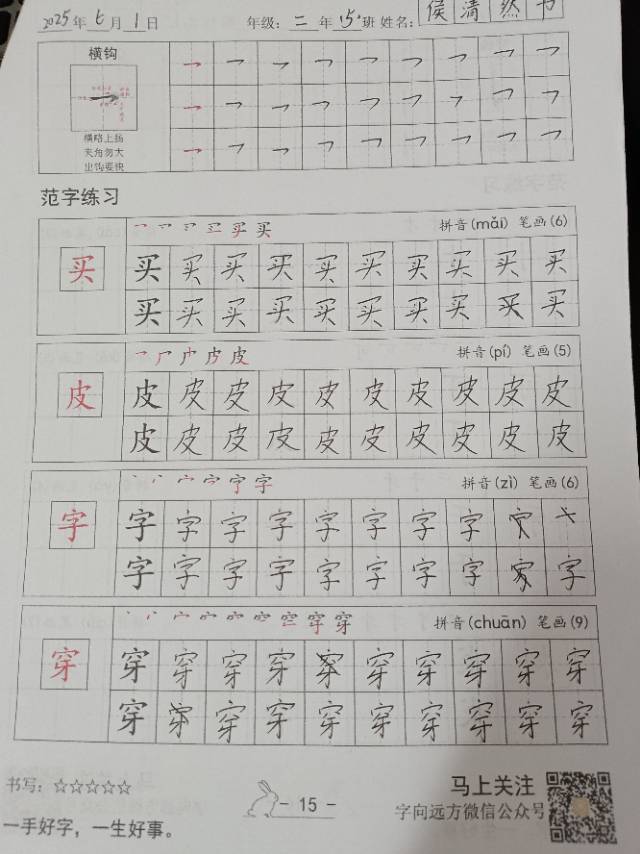 2025年七月1日 年级：二年15班 姓名：侯清然
横钩
横略上扬
夹角勿大
出钩要快
范字练习
拼音(mǎi) 笔画(6)
买 买 买 买 买 买 买 买 买 买 买
买 买 买 买 买 买 买 买 买 买
拼音(pí) 笔画(5)
皮 皮 皮 皮 皮 皮 皮 皮 皮 皮 皮
皮 皮 皮 皮 皮 皮 皮 皮 皮 皮
拼音(zì) 笔画(6)
字 字 字 字 字 字 字 字 字
字 字 字 字 字 字 字 字 字 字
拼音(chuān) 笔画(9)
穿 穿 穿 穿 穿 穿 穿 穿 穿 穿
穿 穿 穿 穿 穿 穿 穿 穿 穿
书写：☆☆☆☆☆
一手好字，一生好事。
- 15 -
马上关注
字向远方微信公众号